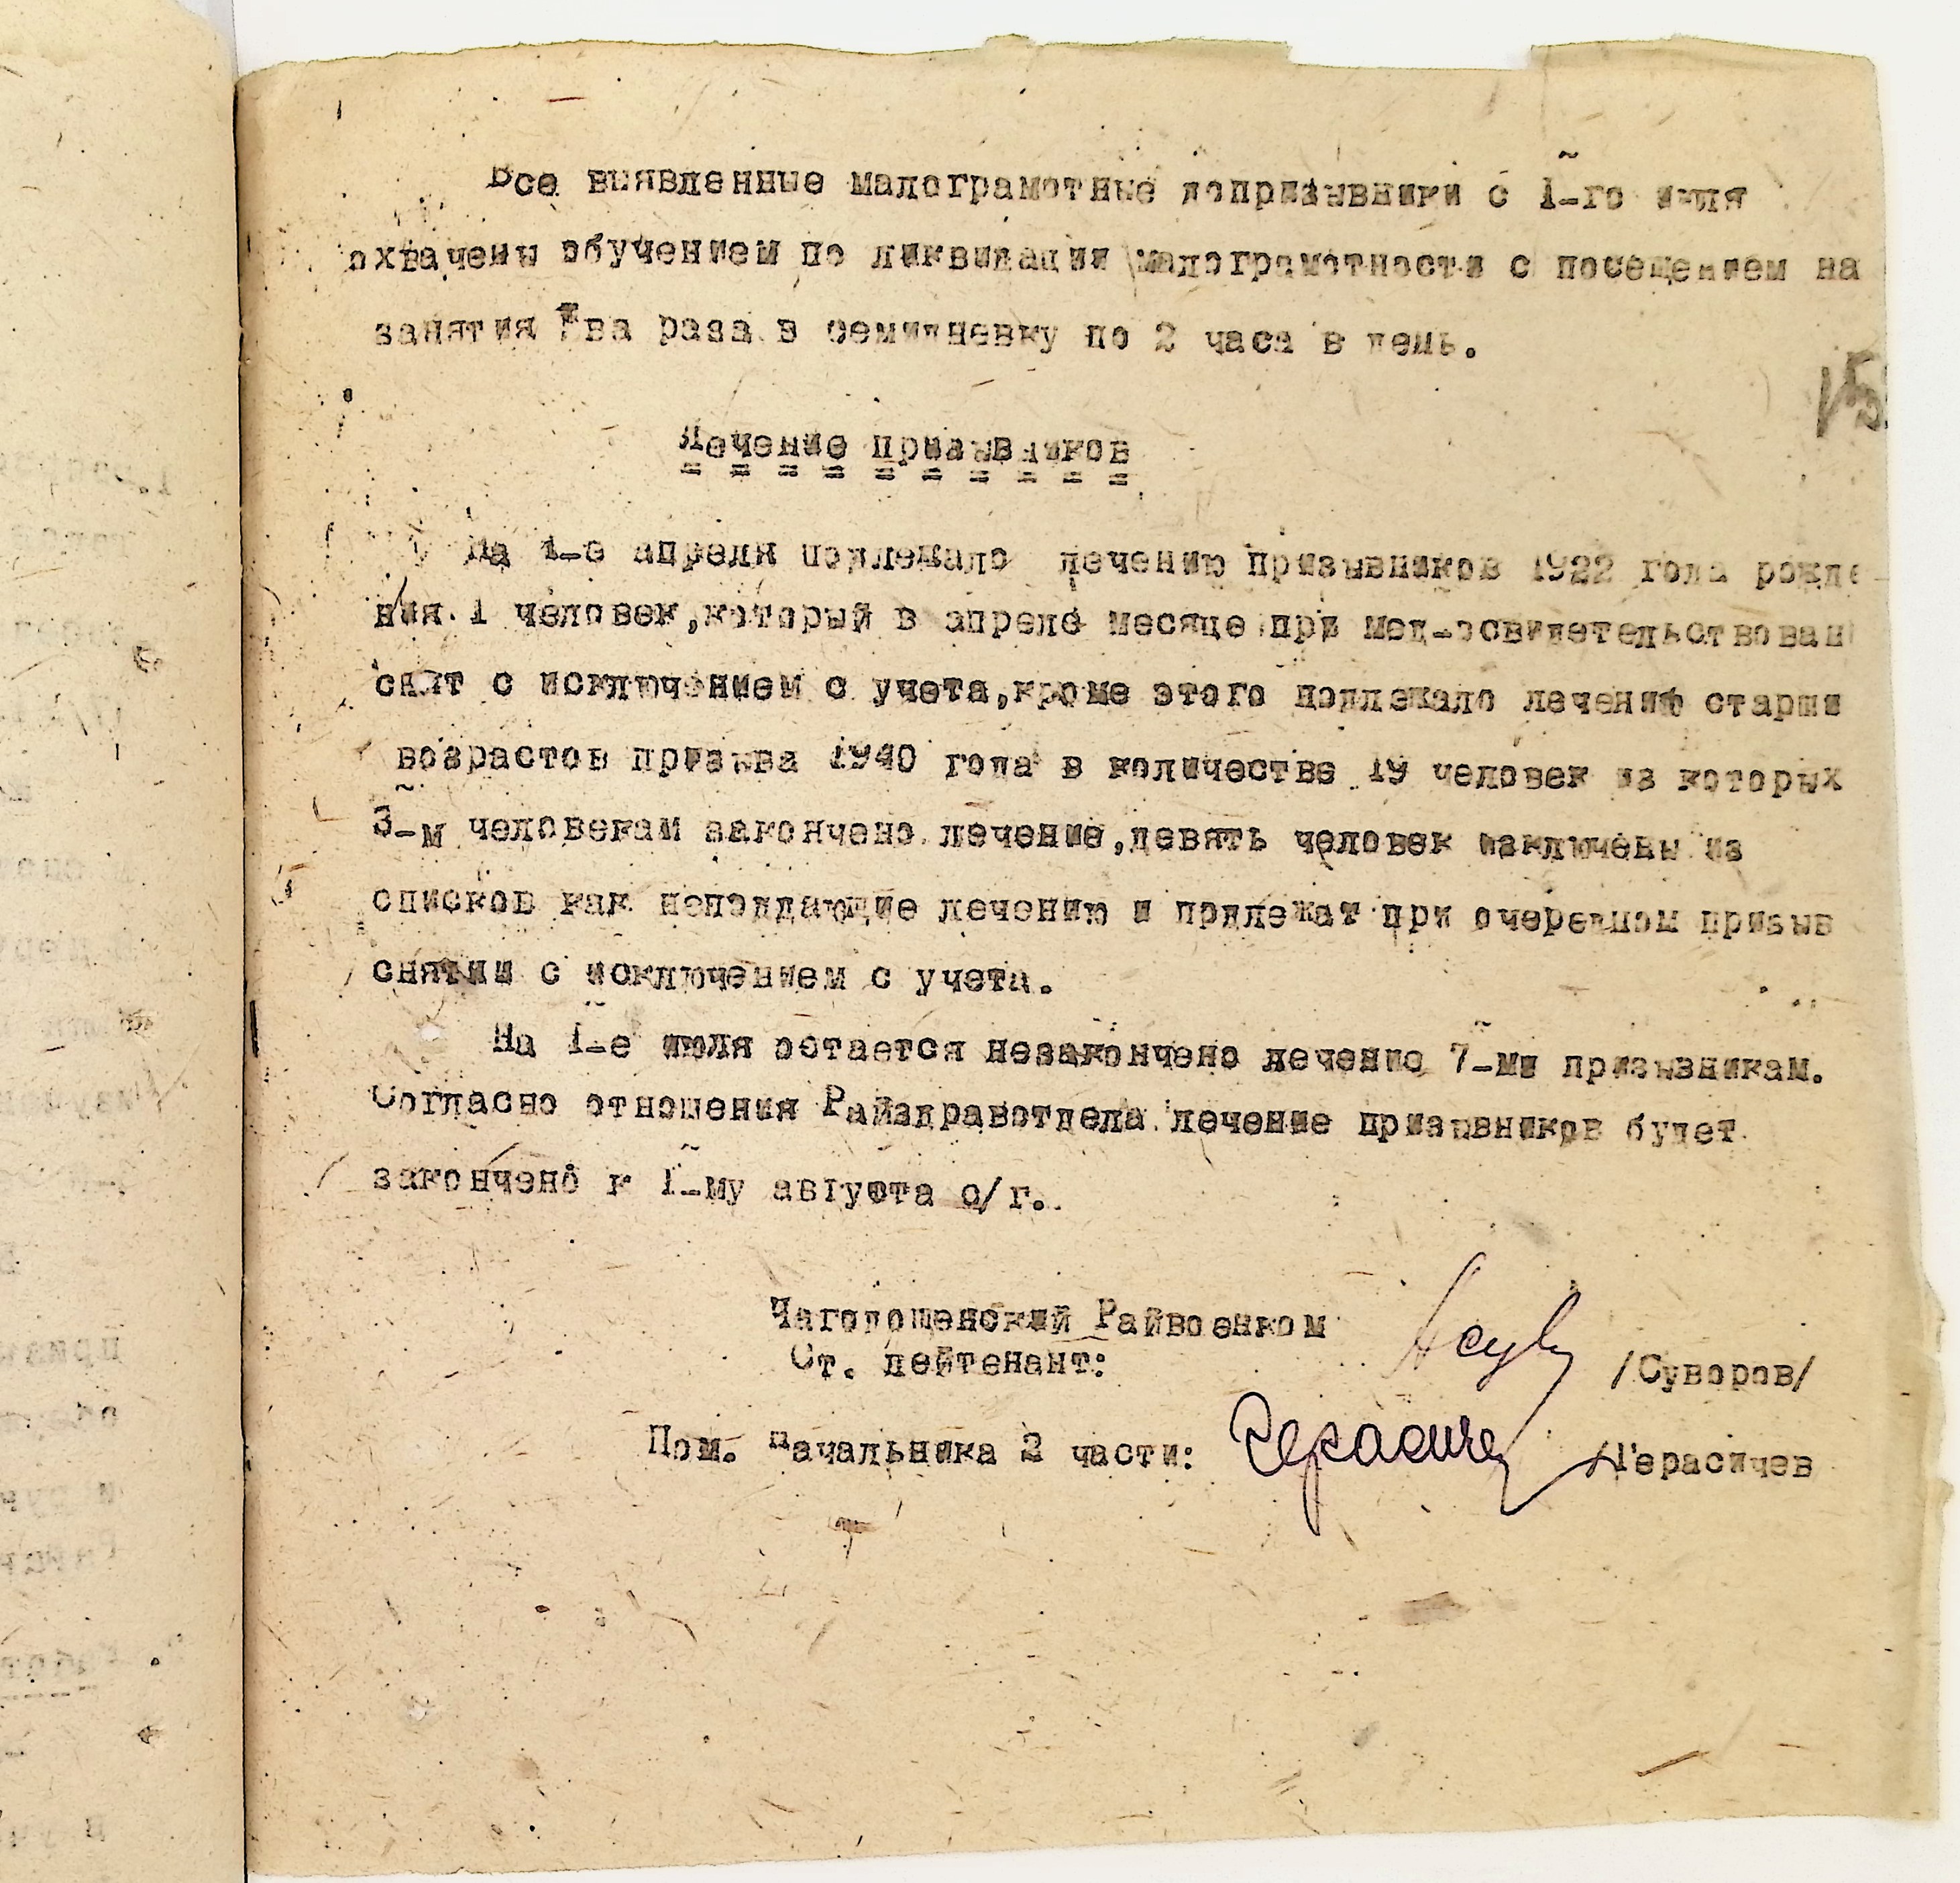 Все выявленные малограмотные допризывники с 1-го июля
охвачены обучением по ликвидации малограмотности с посещением на
занятия два раза в семидневку по 2 часа в день.
15
Лечение призывников
= = = = = = = = = =
На 1-е апреля подлежало лечению призывников 1922 года рожде
ния 1 человек,который в апреле месяце при мед-освидетельствован
снят с исключением с учета,кроме этого подлежало лечению старши
возрастов призыва 1940 года в количестве 19 человек из которых
3-м человекам закончено лечение,девять человек изключены из
списков как неподдающие лечению и подлежат при очередном призыв
снятии с исключением с учета.
На 1-е июля остается незакончено лечение 7-ми призывникам.
Согласно отношения Райздравотдела лечение призывников будет
закончено к 1-му августа с/г.
Чагодощенский Райвоенком
Ст. лейтенант:
/Суворов/
Пом. начальника 2 части: Герасиче
/Герасичев